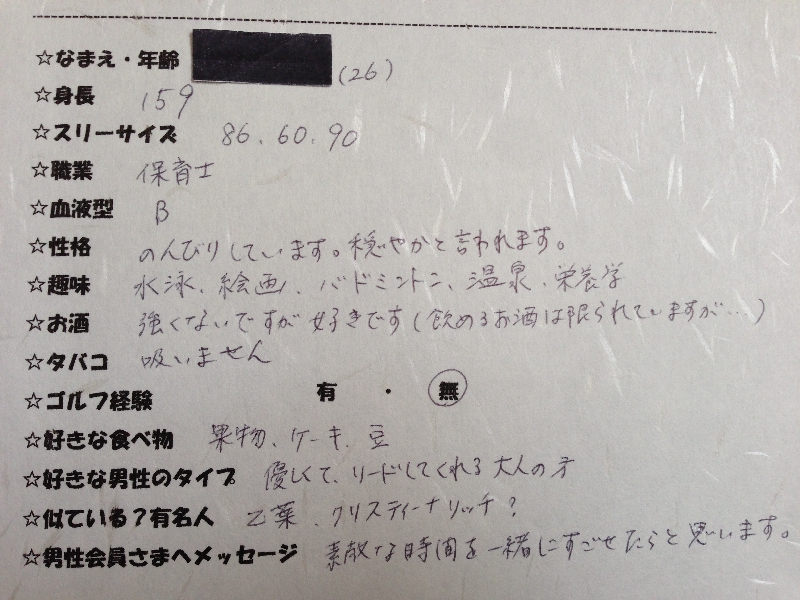 ☆なまえ・年齢 (26)
☆身長 159
☆スリーサイズ 86.60.90
☆職業 保育士
☆血液型 B
☆性格 のんびりしています。穏やかと言われます。
☆趣味 水泳、絵画、バドミントン、温泉、栄養学
☆お酒 強くないですが好きです(飲めるお酒は限られていますが…)
☆タバコ 吸いません
☆ゴルフ経験 有 ・ 無
☆好きな食べ物 果物、ケーキ、豆
☆好きな男性のタイプ 優しくて、リードしてくれる大人の方
☆似ている?有名人 乙葉、クリスティーナリッチ?
☆男性会員さまへメッセージ 素敵な時間を一緒にすごせたらと思います。